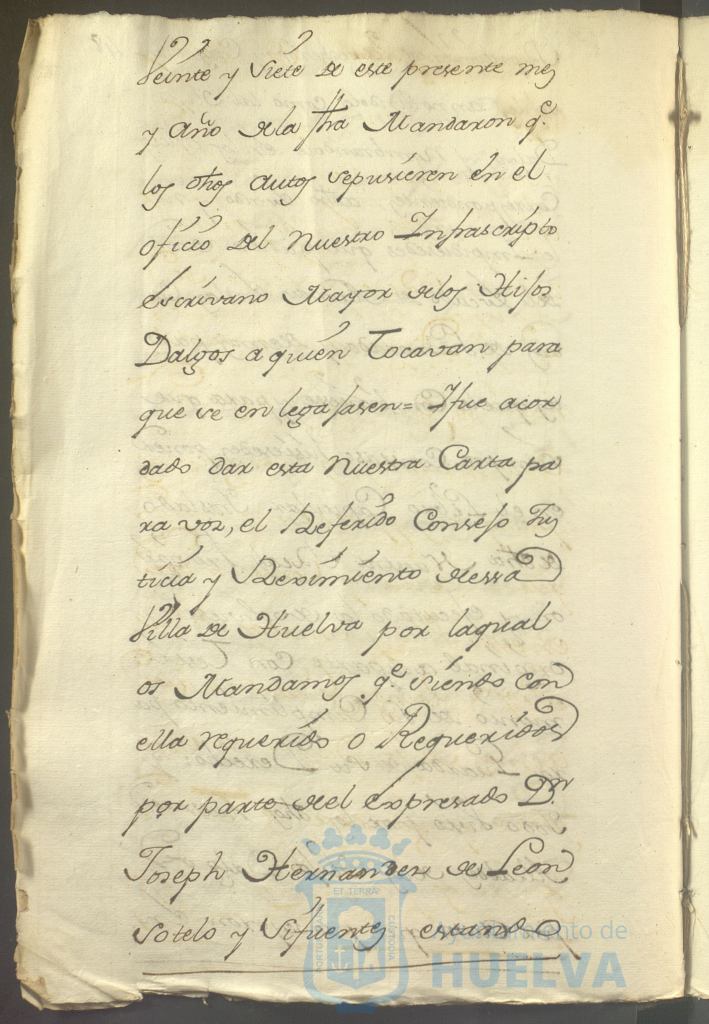 Veinte y Siete de este presente mes
y año dela fha Mandaron q.e
los dhos autos sepusieren en el
oficio del nuestro Infrascripto
escrivano Mayor delos Hijos
Dalgos a quien Tocavan para
que se en legajasen = Y fue acor
dado dar esta nuestra Carta pa
ra vos, el Referido Consejo Jus
ticia y Reximiento dessa
Villa de Huelva por laqual
os Mandamos q.e siendo con
ella requerido o Requeridos
por parte del expresado D.n
Joseph Hernandez de Leon
Sotelo y Sifuentes estando
Ayuntamiento de
HUELVA